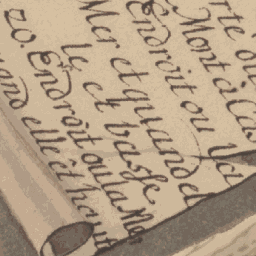 rte ou
Mont à Cas
Endroit ou
Mer et quand el
le est basse
20. Endroit ou la Mer
and elle est haute